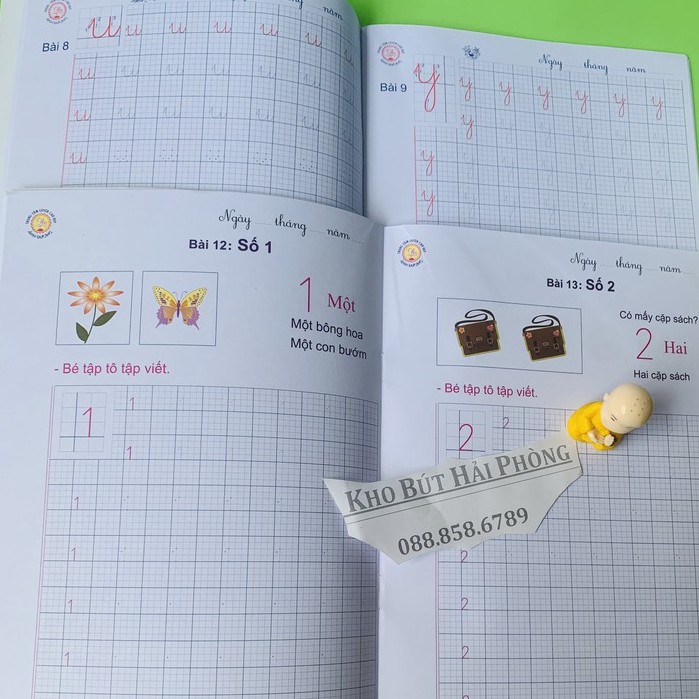 Ngày tháng năm
Bài 8
u u u u u u u
u
u
u
Ngày tháng năm
Bài 9
y y y y y y y
y
y
y
Ngày tháng năm
Bài 12: Số 1
1 Một
Một bông hoa
Một con bướm
- Bé tập tô tập viết.
1 1
1
1
1
1
1
Ngày tháng năm
Bài 13: Số 2
Có mấy cặp sách?
2 Hai
Hai cặp sách
- Bé tập tô tập viết.
2 2
2
2
2
KHO BÚT HẢI PHÒNG
088.858.6789